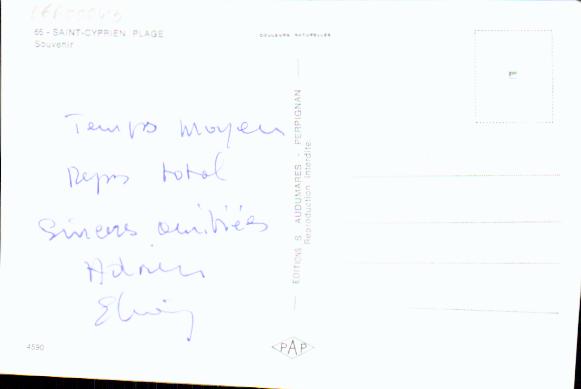 66 - SAINT-CYPRIEN PLAGE
Souvenir
COULEURS NATURELLES
Temps moyen
Repos total
Sincères amitiés
EDITIONS S. AUDUMARES - PERPIGNAN
Reproduction interdite
4590
PAP